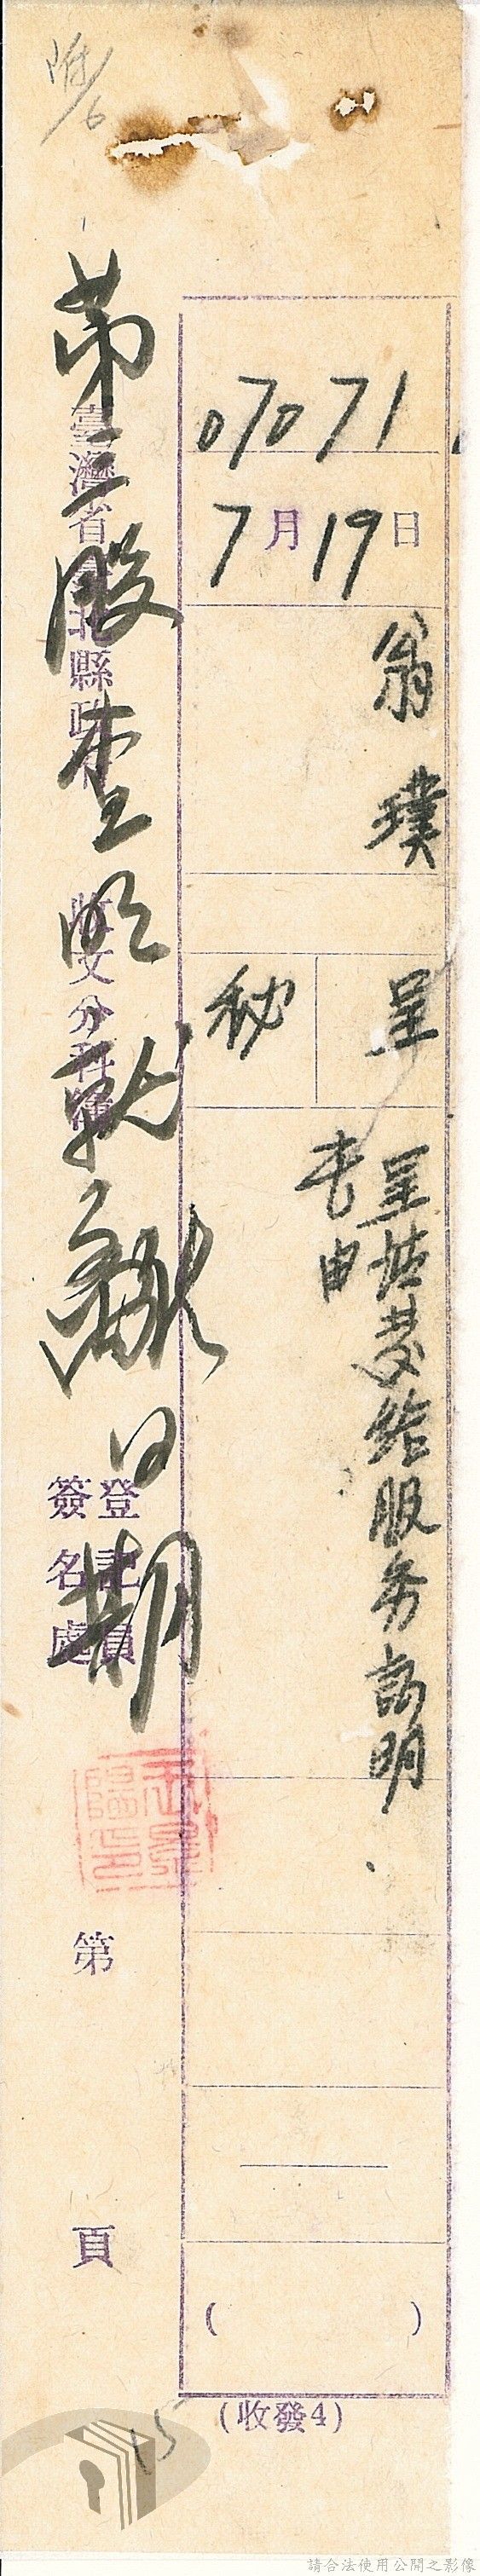 07071
7月19日
翁璞
呈
秘
呈請發給服務證明
老由
第三股查明執掌日期
臺灣省臺北縣政府 收文分科簿
登記員
簽名處
第 頁
( )
(收發4)
15
請合法使用公開之影像